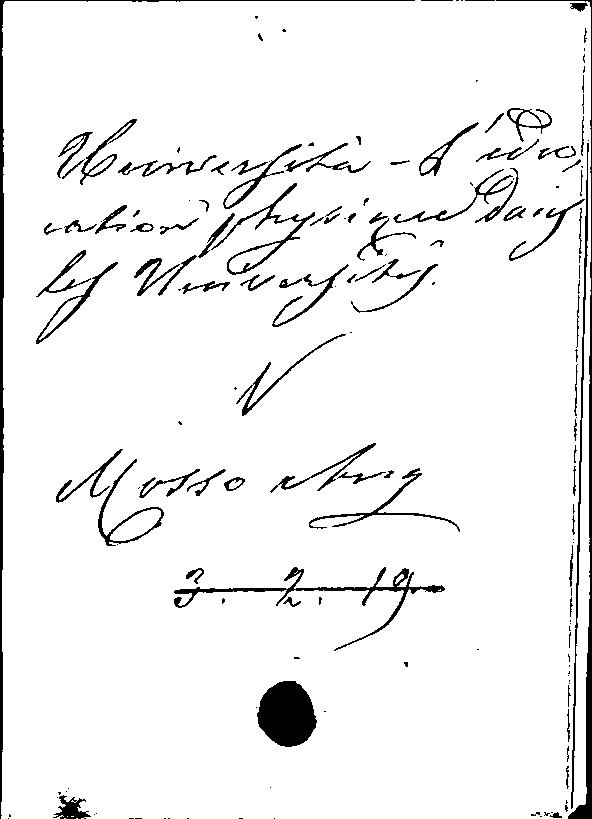 Università - L'édu,
cation physique dans
les Universités.
V
Mosso Ang
3. 2. 19.